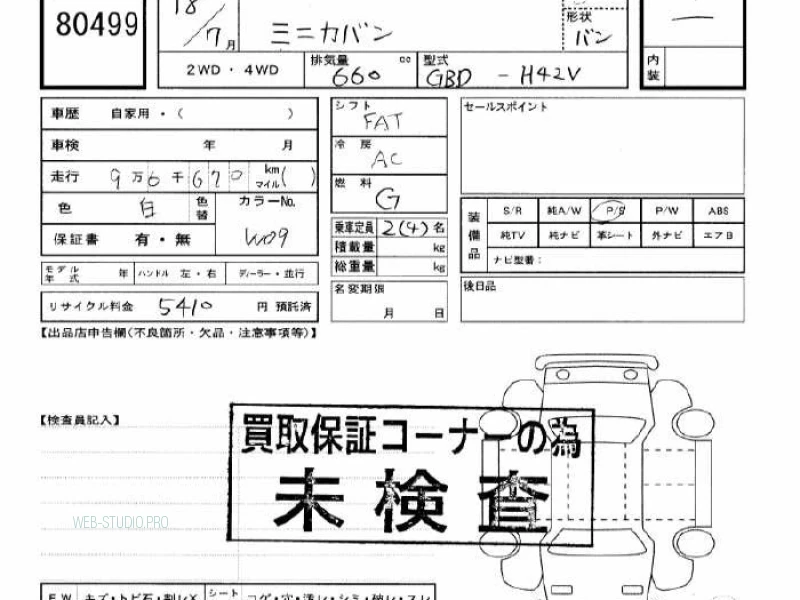 80499
18/7月
ミニカバン
形状
バン
内装
2WD・4WD
排気量 660 cc
型式 GBD - H42V
車歴 自家用・( )
車検 年 月
走行 9万6千670 km マイル( )
色 白 色替
カラーNo. W09
保証書 有・無
モデル年式 年 ハンドル 左・右 ディーラー・並行
リサイクル料金 5410 円 預託済
シフト FAT
冷房 AC
燃料 G
乗車定員 2(4)名
積載量 kg
総重量 kg
名変期限
月 日
セールスポイント
装備品
S/R 純A/W P/S P/W ABS
純TV 純ナビ 革シート 外ナビ エアB
ナビ型番:
後日品
【出品店申告欄(不良箇所・欠品・注意事項等)】
【検査員記入】
買取保証コーナーの為
未検査
WEB-STUDIO.PRO
シート